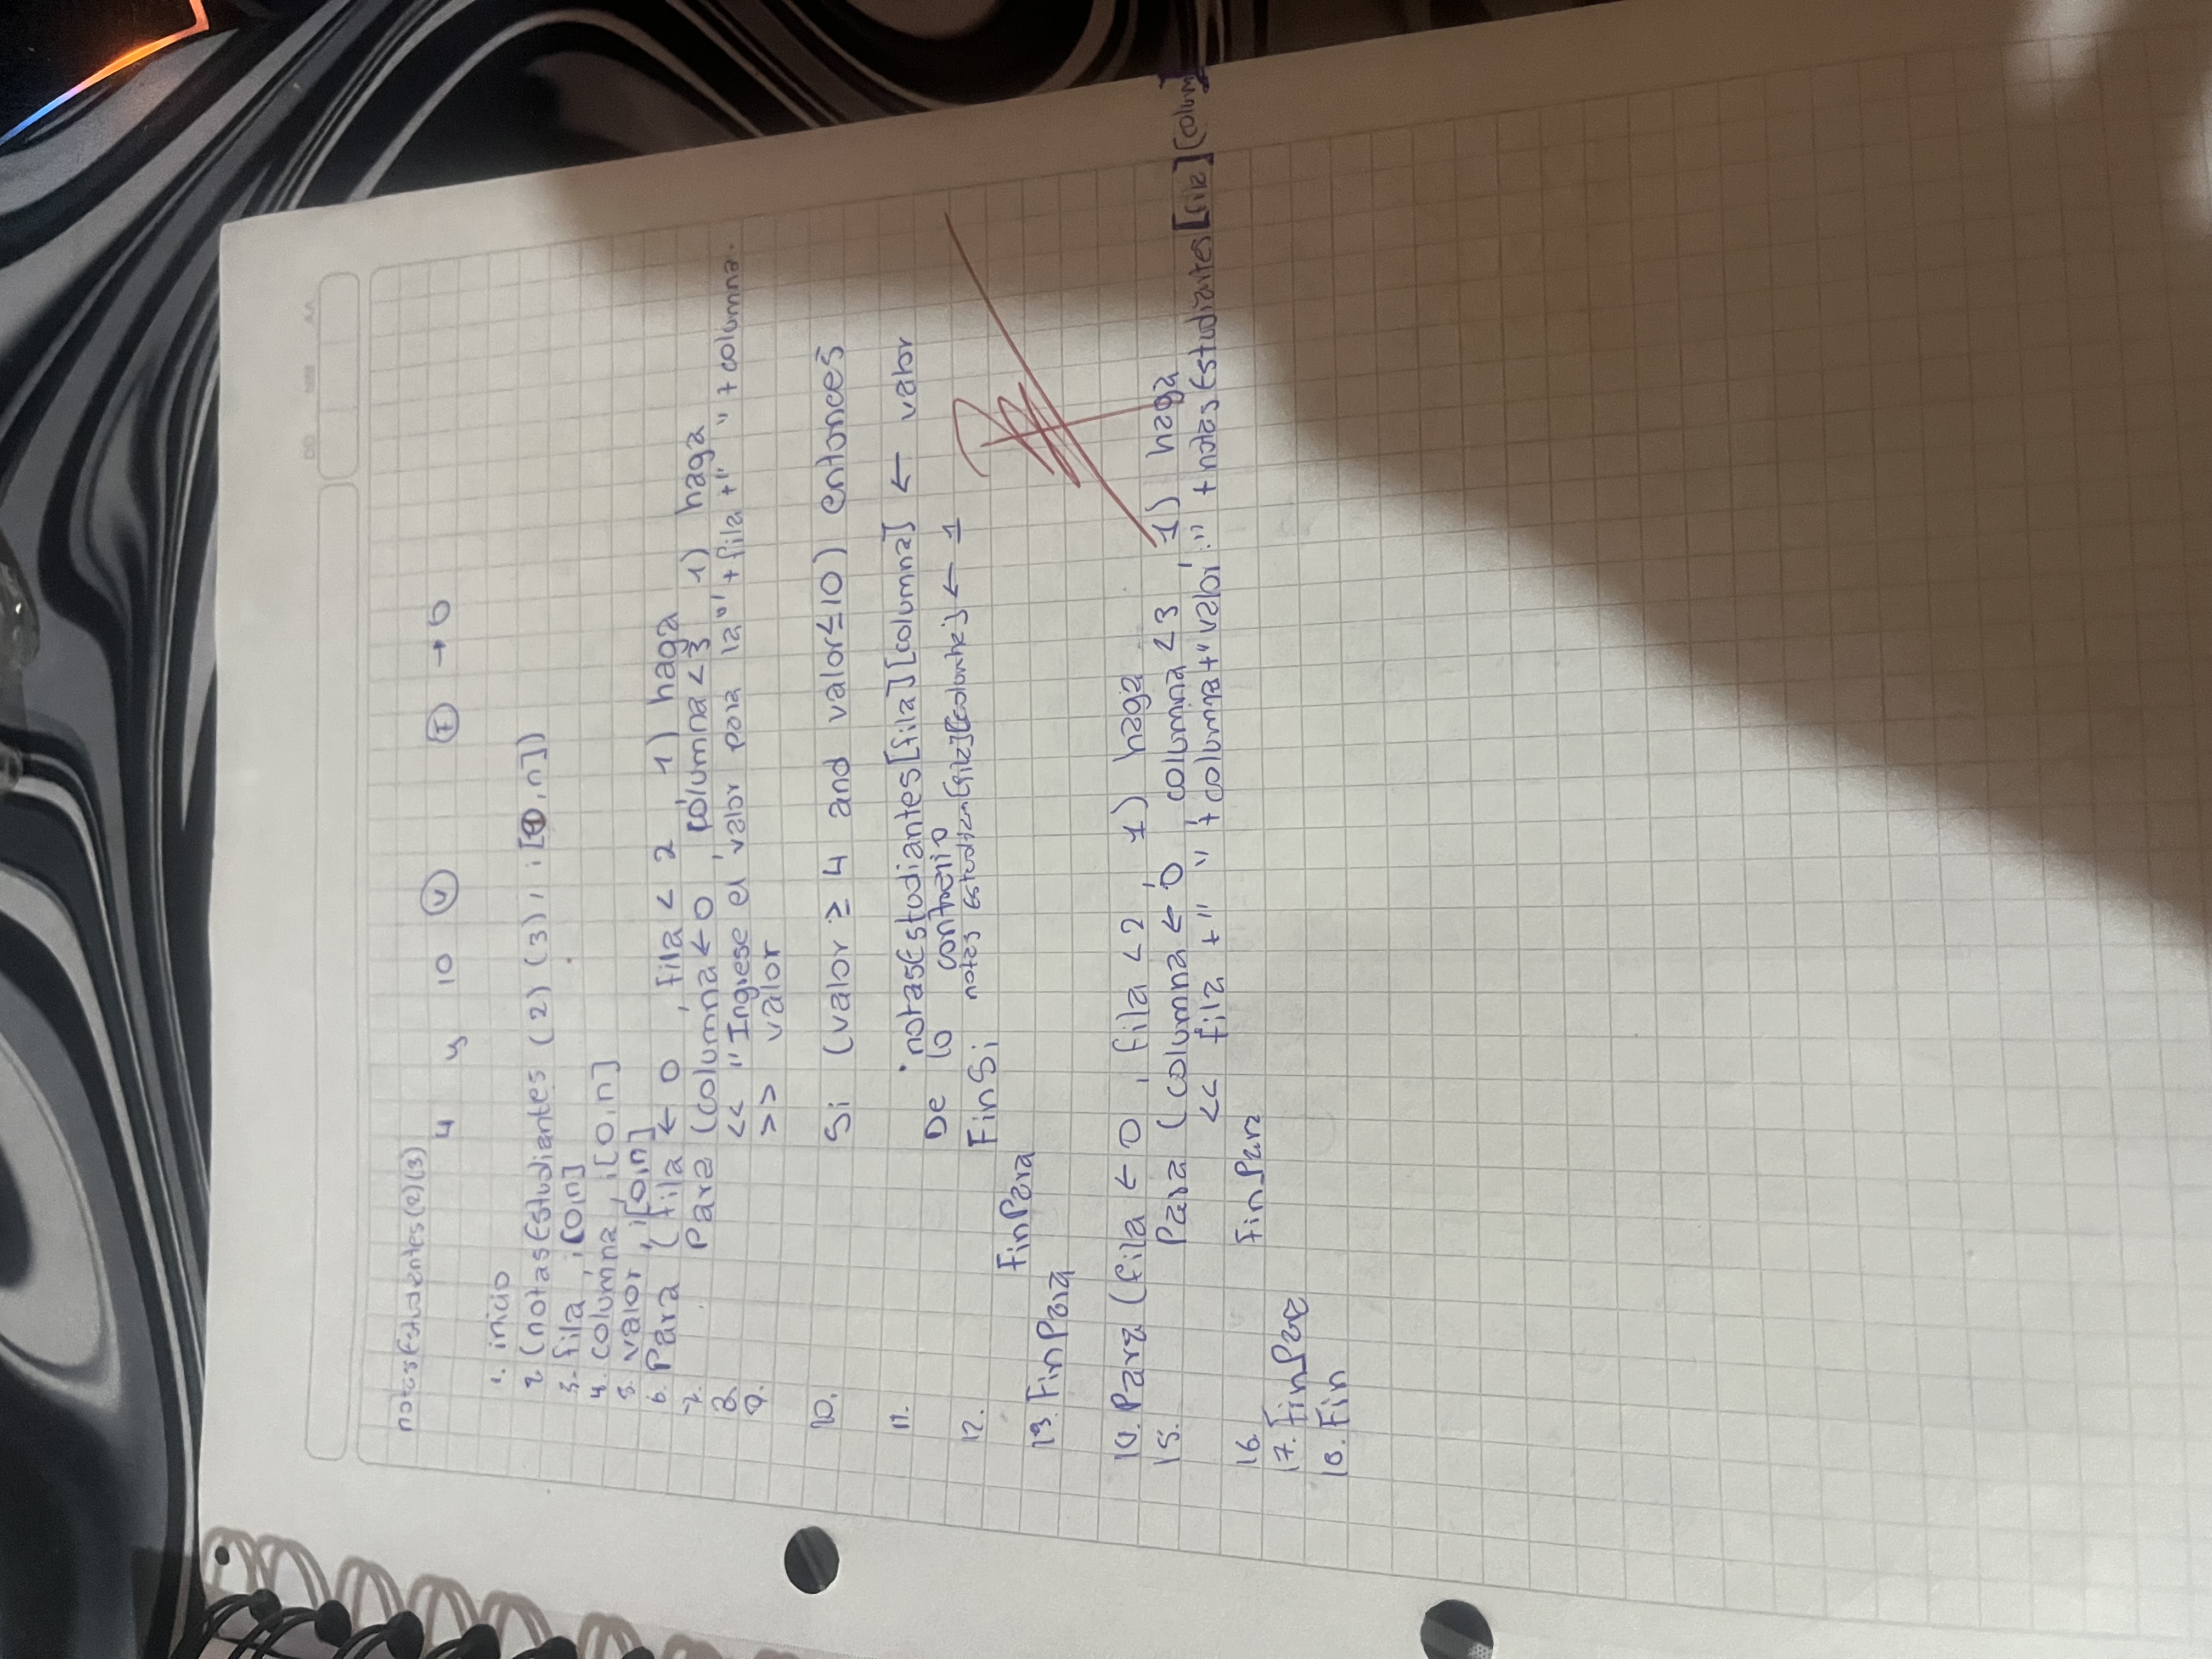 notasEstudentes(2)(3)
4 y 10 V F → 0
1. inicio
2. (notasEstudiantes (2) (3), i[0,n])
3. fila, i[0,n]
4. columna, i[0,n]
5. valor, i[0,n]
6. Para (fila ← 0, fila < 2, 1) haga
7. Para (columna ← 0, columna < 3, 1) haga
8 << "Ingrese el valor para la" + fila + " " + columna.
9. >> valor
10. Si (valor ≥ 4 and valor ≤ 10) entonces
11. notasEstudiantes[fila][columna] ← valor
De lo contrario
notas Estudian[fila][columna] ← 1
12. FinSi
FinPara
13. FinPara
14. Para (fila ← 0, fila < 2, 1) haga
15. Para (columna ← 0, columna < 3, 1) haga
<< fila + " " + columna + "valor:" + notasEstudiantes[fila][colum]
16 FinPara
17. FinPara
18. Fin